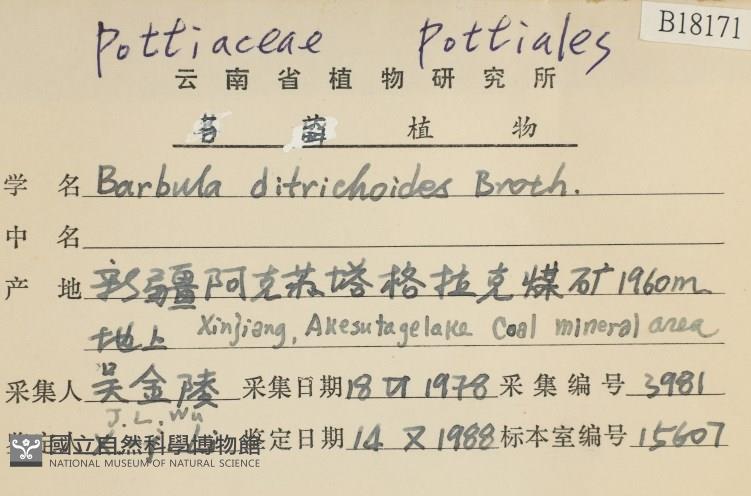 B18171
Pottiaceae Pottiales
云南省植物研究所
苔藓植物
学 名 Barbula ditrichoides Broth.
中 名
产 地 新疆阿克苏塔格拉克煤矿1960m
地上 Xinjiang, Akesutagelake Coal mineral area
采集人 吴金陵 采集日期 18 VI 1978 采集编号 3981
J.L. Wu
鉴定日期 14 X 1988 标本室编号 15607
國立自然科學博物館
NATIONAL MUSEUM OF NATURAL SCIENCE